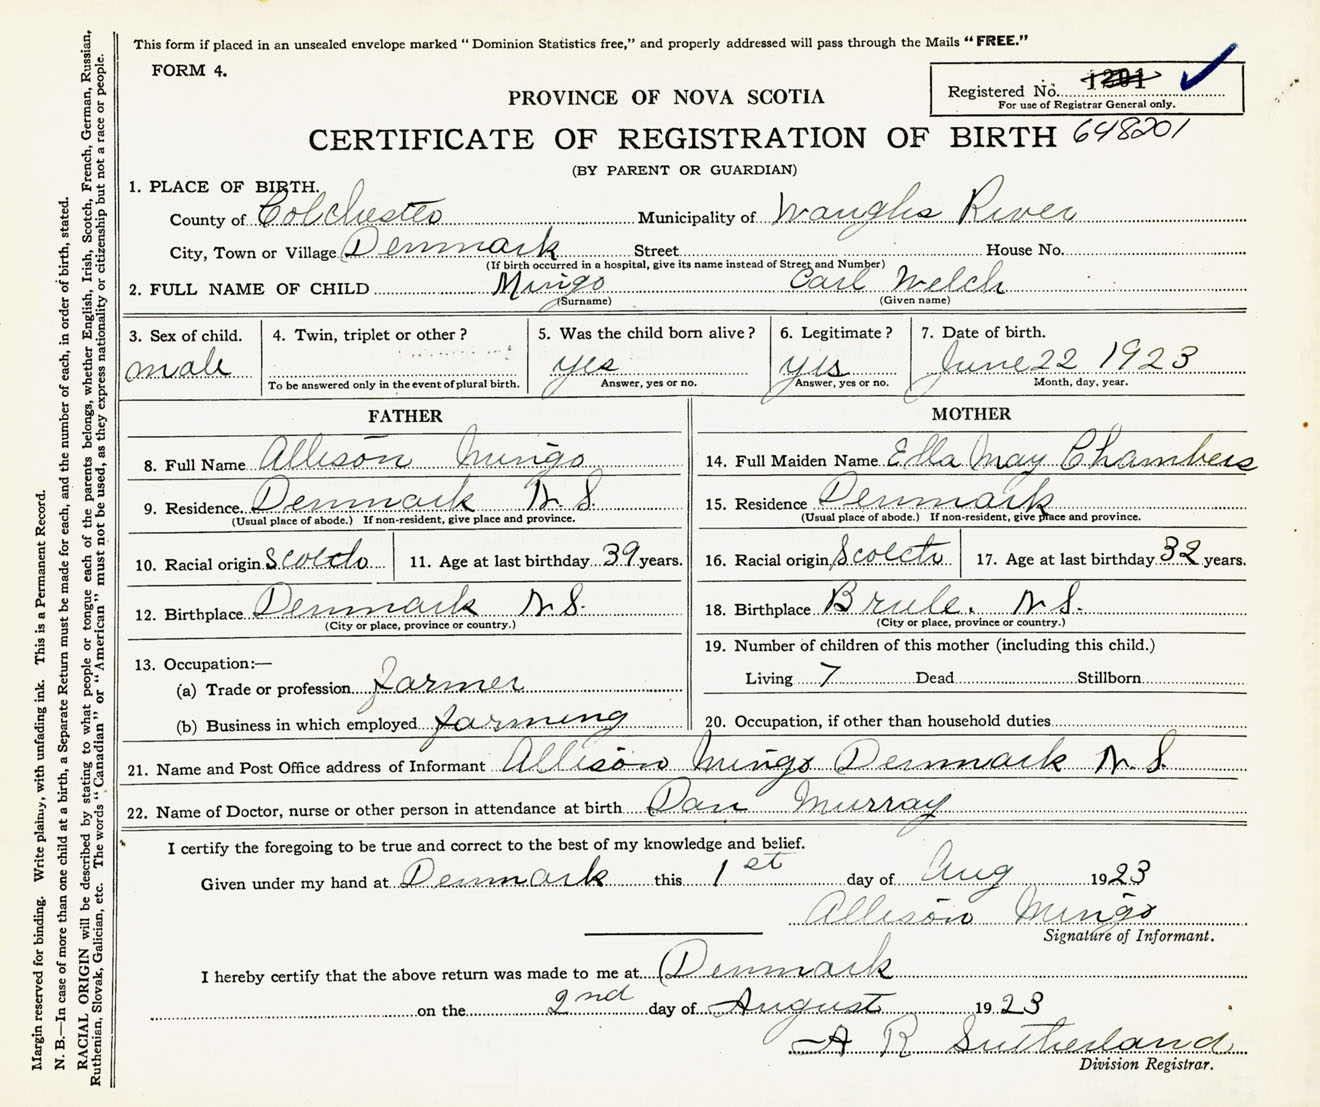 This form if placed in an unsealed envelope marked "Dominion Statistics free," and properly addressed will pass through the Mails "FREE."
FORM 4.
Registered No. 1201
For use of Registrar General only.
PROVINCE OF NOVA SCOTIA
CERTIFICATE OF REGISTRATION OF BIRTH 648201
(BY PARENT OR GUARDIAN)
1. PLACE OF BIRTH.
County of Colchester Municipality of Waughs River
City, Town or Village Denmark Street House No.
(If birth occurred in a hospital, give its name instead of Street and Number)
2. FULL NAME OF CHILD Mingo Carl Welch
(Surname) (Given name)
3. Sex of child. 4. Twin, triplet or other? 5. Was the child born alive? 6. Legitimate? 7. Date of birth.
male yes yes June 22 1923
To be answered only in the event of plural birth. Answer, yes or no. Answer, yes or no. Month, day, year.
FATHER MOTHER
8. Full Name Allison Mingo 14. Full Maiden Name Ella May Chambers
9. Residence. Denmark N.S. 15. Residence Denmark
(Usual place of abode.) If non-resident, give place and province. (Usual place of abode.) If non-resident, give place and province.
10. Racial origin Scotch 11. Age at last birthday 39 years. 16. Racial origin Scotch 17. Age at last birthday 32 years.
12. Birthplace Denmark N.S. 18. Birthplace Brule. N.S.
(City or place, province or country.) (City or place, province or country.)
13. Occupation:— 19. Number of children of this mother (including this child.)
(a) Trade or profession farmer Living 7 Dead Stillborn
(b) Business in which employed farming 20. Occupation, if other than household duties
21. Name and Post Office address of Informant Allison Mingo Denmark N.S.
22. Name of Doctor, nurse or other person in attendance at birth Dan Murray
I certify the foregoing to be true and correct to the best of my knowledge and belief.
Given under my hand at Denmark this 1st day of Aug 1923
Allison Mingo
Signature of Informant.
I hereby certify that the above return was made to me at Denmark
on the 2nd day of August 1923
A R Sutherland
Division Registrar.
Margin reserved for binding. Write plainly, with unfading ink. This is a Permanent Record.
N. B.—In case of more than one child at a birth, a Separate Return must be made for each, and the number of each, in order of birth, stated.
RACIAL ORIGIN will be described by stating to what people or tongue each of the parents belongs, whether English, Irish, Scotch, French, German, Russian,
Ruthenian, Slovak, Galician, etc. The words "Canadian" or "American" must not be used, as they express nationality or citizenship but not a race or people.